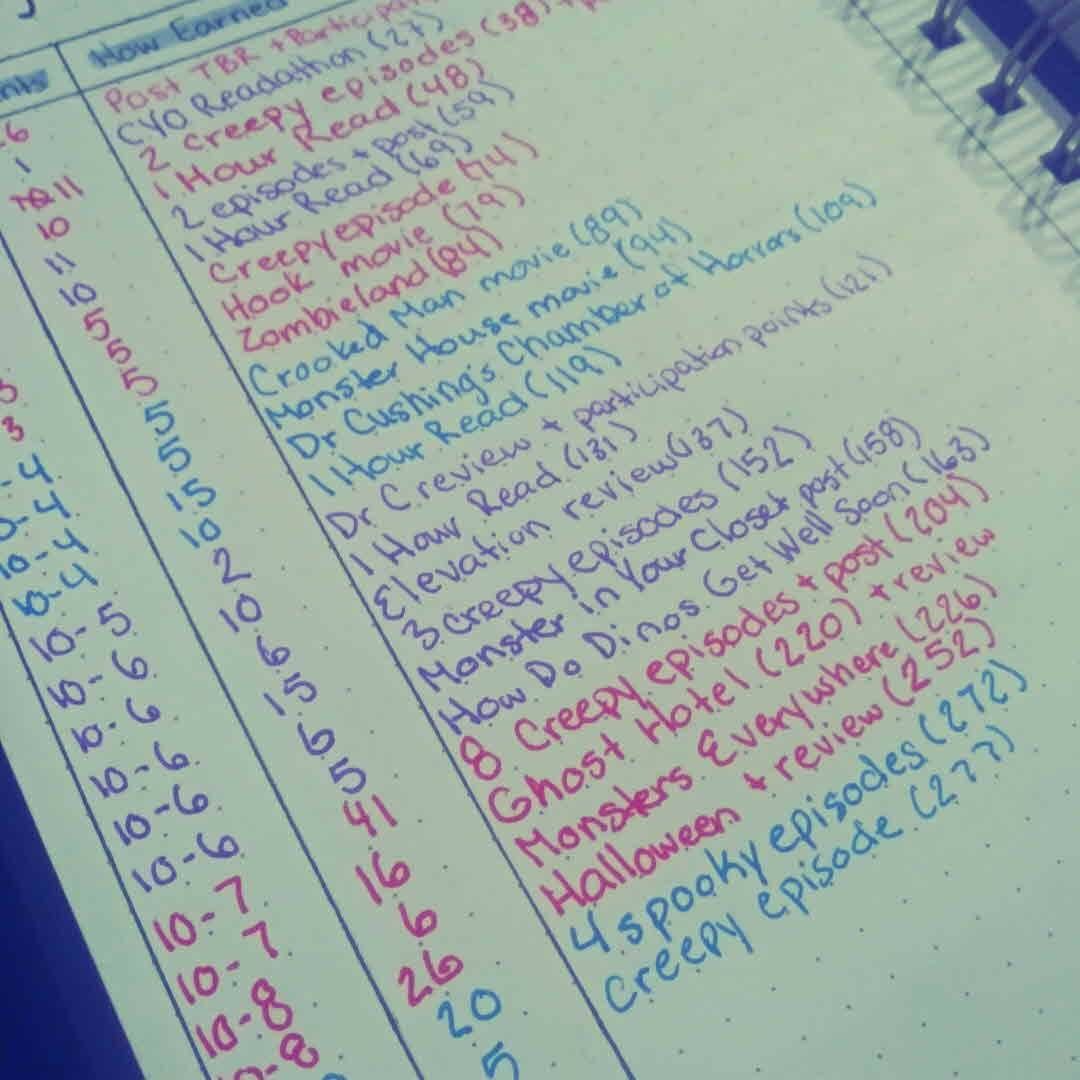 nts How Earned
6 Post TBR + Participat
1 CYO Readathon (27)
11 2 creepy episodes (38) +
10 1 Hour Read (48)
11 2 episodes + post (59)
10 1 Hour Read (69)
5 Creepy episode (74)
3 5 Hook movie (79)
3 5 Zombieland (84)
-4 5 Crooked Man movie (89)
0-4 5 Monster House movie (94)
10-4 15 Dr Cushing's Chamber of Horrors (109)
10-4 10 1 Hour Read (119)
10-5 2 Dr C review + participation points (121)
10-6 10 1 Hour Read (131)
10-6 6 Elevation review (137)
10-6 15 3 creepy episodes (152)
10-6 6 Monster in Your Closet post (158)
10-6 5 How Do Dinos Get Well Soon (163)
10-7 41 8 Creepy episodes + post (204)
10-7 16 Ghost Hotel (220) + review
10-8 6 Monsters Everywhere (226)
0-8 26 Halloween + review (252)
20 4 spooky episodes (272)
5 Creepy episode (277)